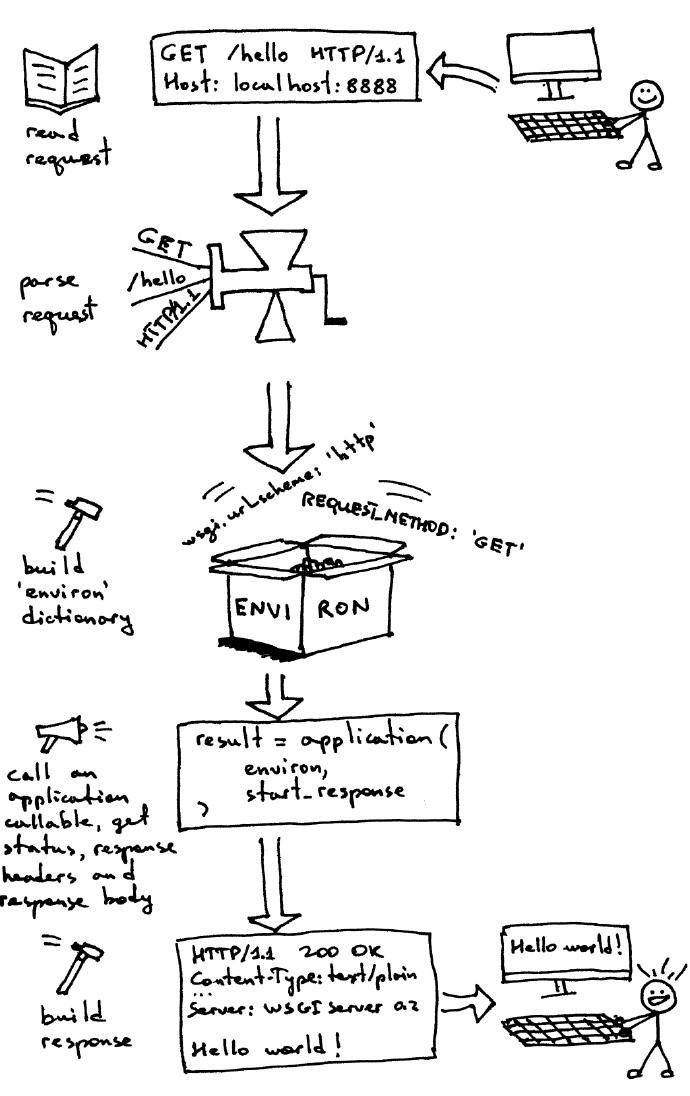 GET /hello HTTP/1.1
Host: localhost:8888
read
request
GET
/hello
HTTP/1.1
parse
request
wsgi.url_scheme: 'http'
REQUEST_METHOD: 'GET'
build
'environ'
dictionary
ENVI RON
result = application(
environ,
start_response
)
call an
application
callable, get
status, response
headers and
response body
HTTP/1.1 200 OK
Content-Type: text/plain
...
Server: WSGIServer 0.2
Hello world!
Hello world!
build
response